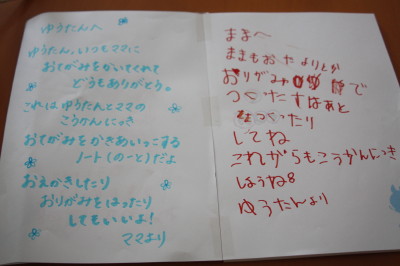 ゆうたんへ
ゆうたん、いつもママに
おてがみをかいてくれて
どうもありがとう。
これは ゆうたんとママの
こうかんにっき
おてがみをかきあいっこする
ノート(のーと)だよ
おえかきしたり
おりがみをはったり
してもいいよ!
ママより
ままへ
ままもおてがみ
おりがみ で
つくった はあと
つくったり
してね
これからもこうかんにっき
しようね
ゆうたんより